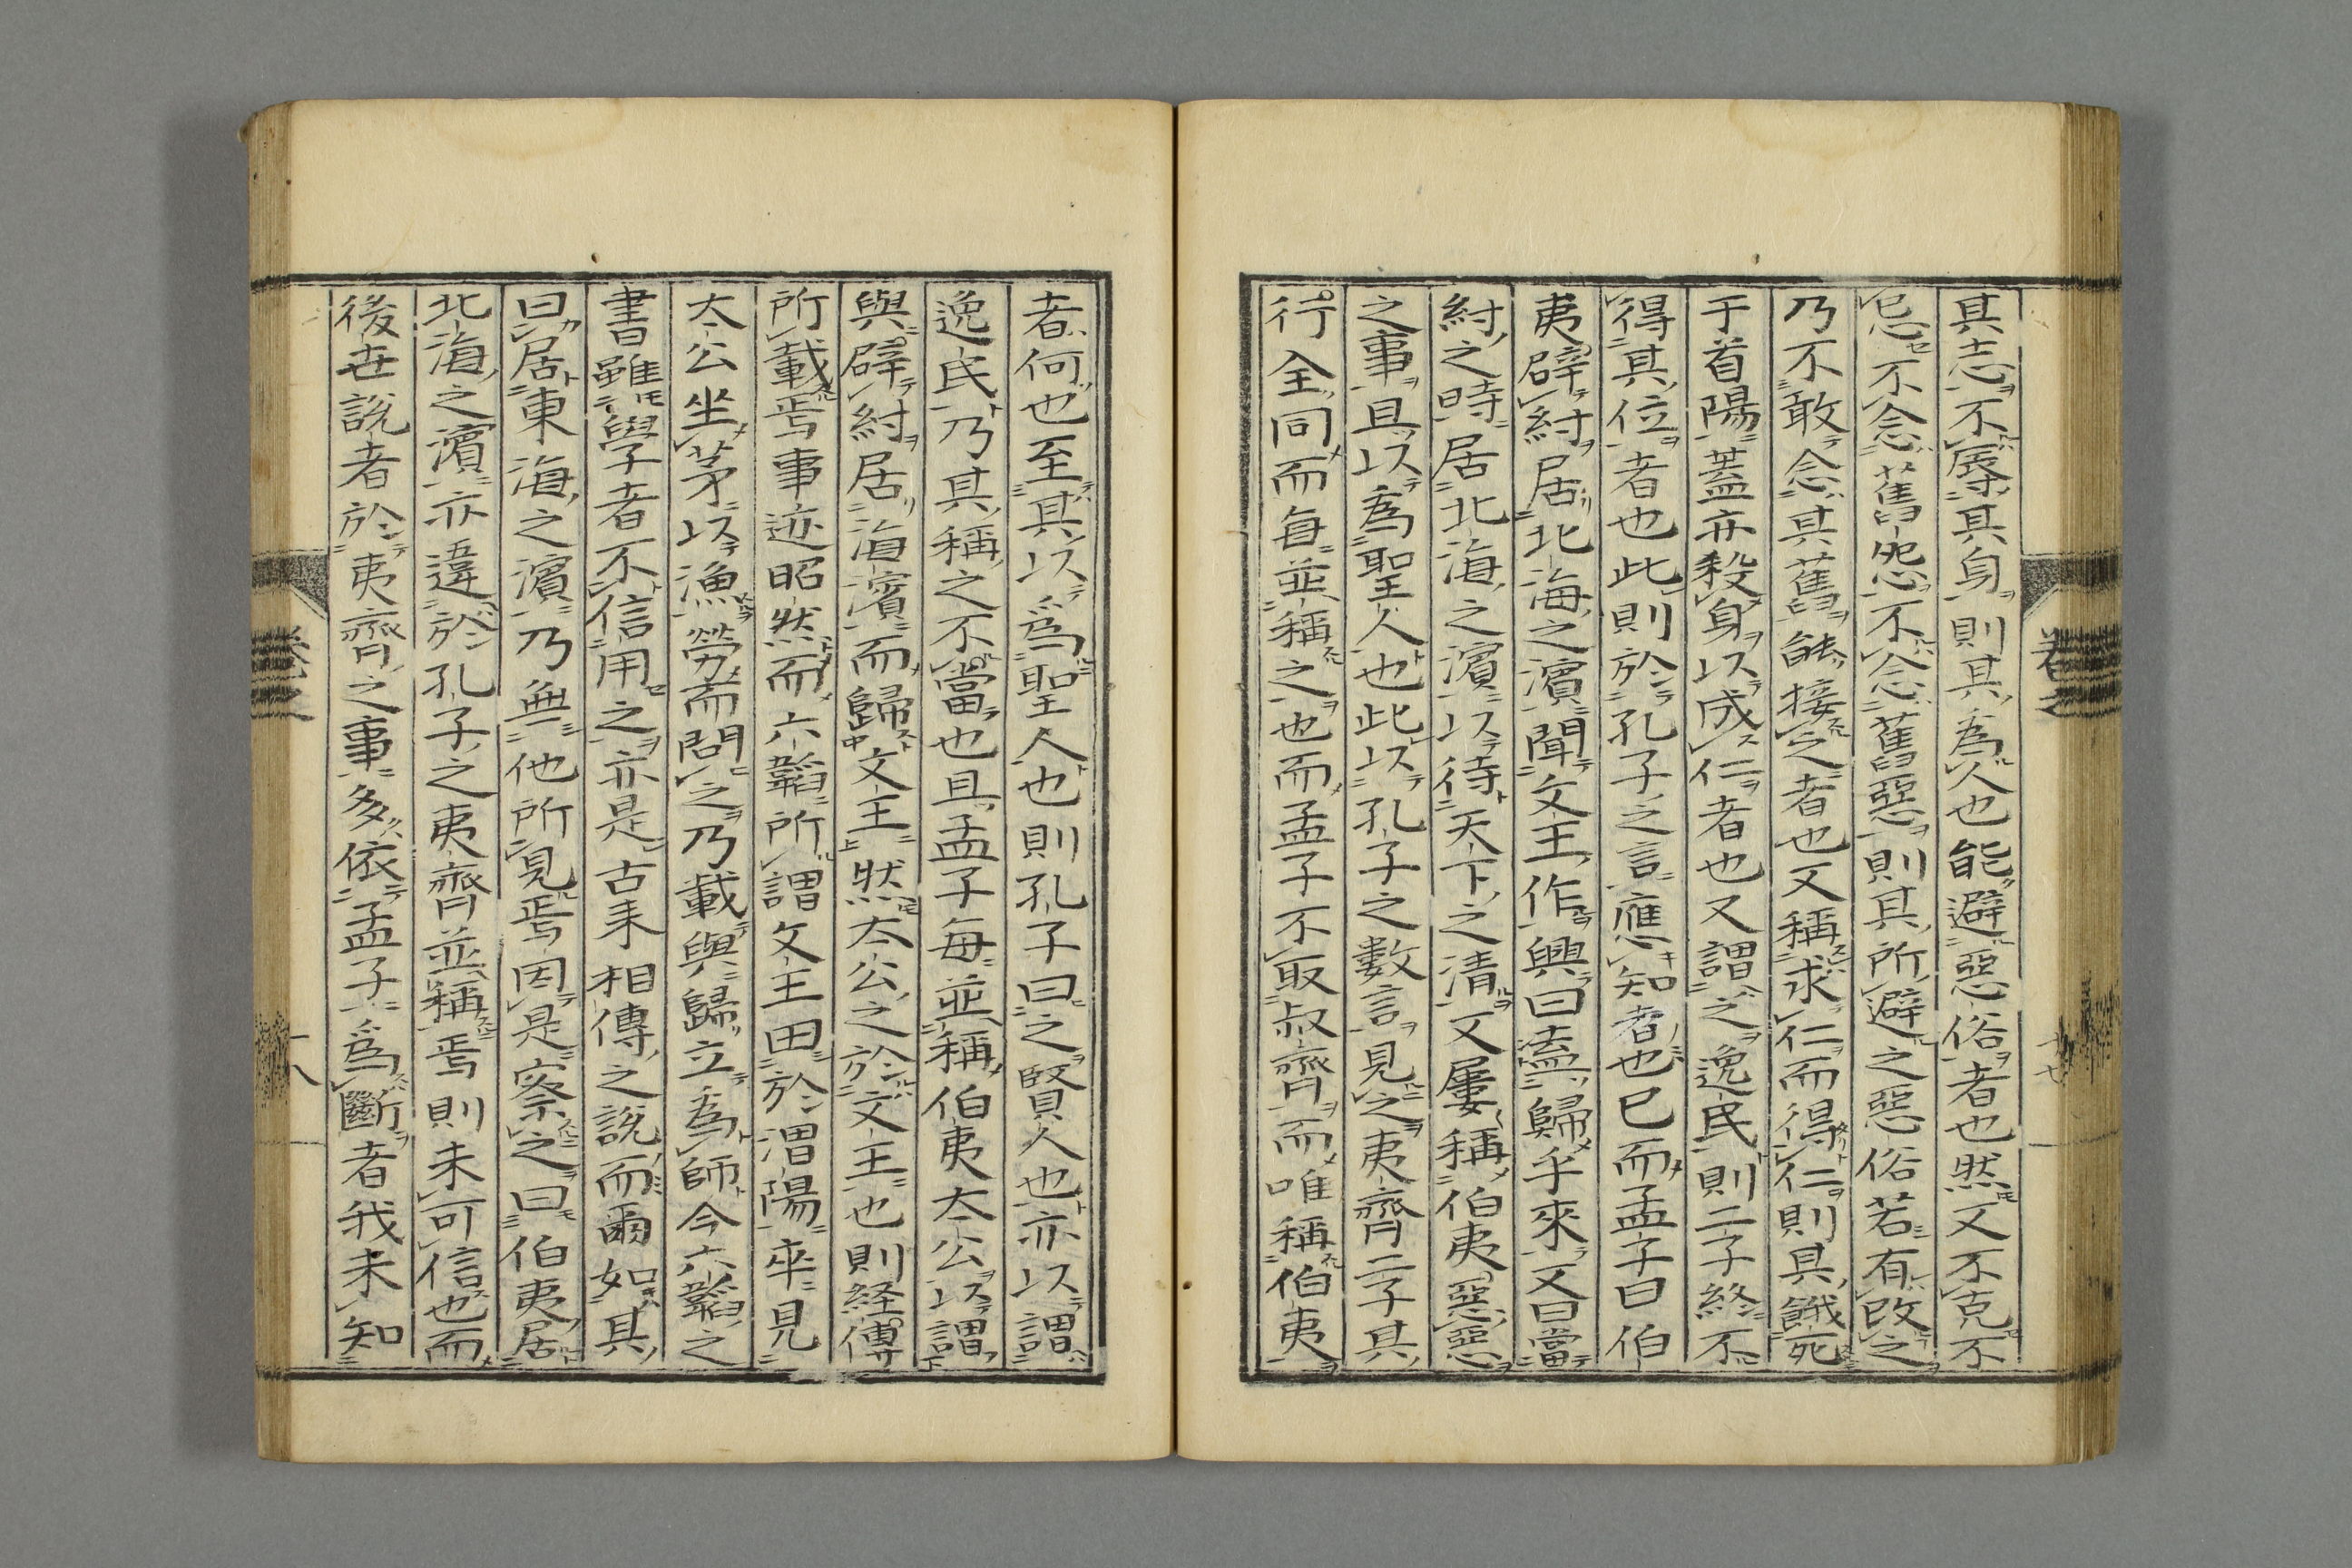 其志不辱其身則其為人也能避惡俗者也然又不克不
忌不念舊怨不念舊惡則其所避之惡俗若有改之
乃不敢念其舊能接之者也又稱求仁而得仁則其餓死
于首陽蓋亦殺身以成仁者也又謂之逸民則二子終不
得其位者也此則於孔子之言應知者也已而孟子曰伯
夷辟紂居北海之濱聞文王作興曰盍歸乎來又曰當
紂之時居北海之濱以待天下之清又屢稱伯夷惡惡
之事且以為聖人也此以孔子之數言見之夷齊二子其
行全同而每並稱之也而孟子不取叔齊而唯稱伯夷
者何也至其以爲聖人也則孔子曰之賢人也亦以謂
逸民乃其稱之不當也且孟子每並稱伯夷太公以謂
與辟紂居海濱而歸文王然太公之於文王也則経傳
所載焉事迹昭然而六韜所謂文王田於渭陽卒見
太公坐茅以漁勞而問之乃載與歸立為師今六韜之
書雖學者不信用之亦是古来相傳之說而爾如其
曰居東海之濱乃無他所見焉因是察之曰伯夷居
北海之濱亦違於孔子之夷齊並稱焉則未可信也而
後世說者於夷齊之事多依孟子爲斷者我未知
卷之
十七
卷之
十八